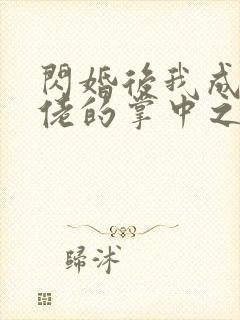 閃婚後我成
佬的掌中之
歸沭